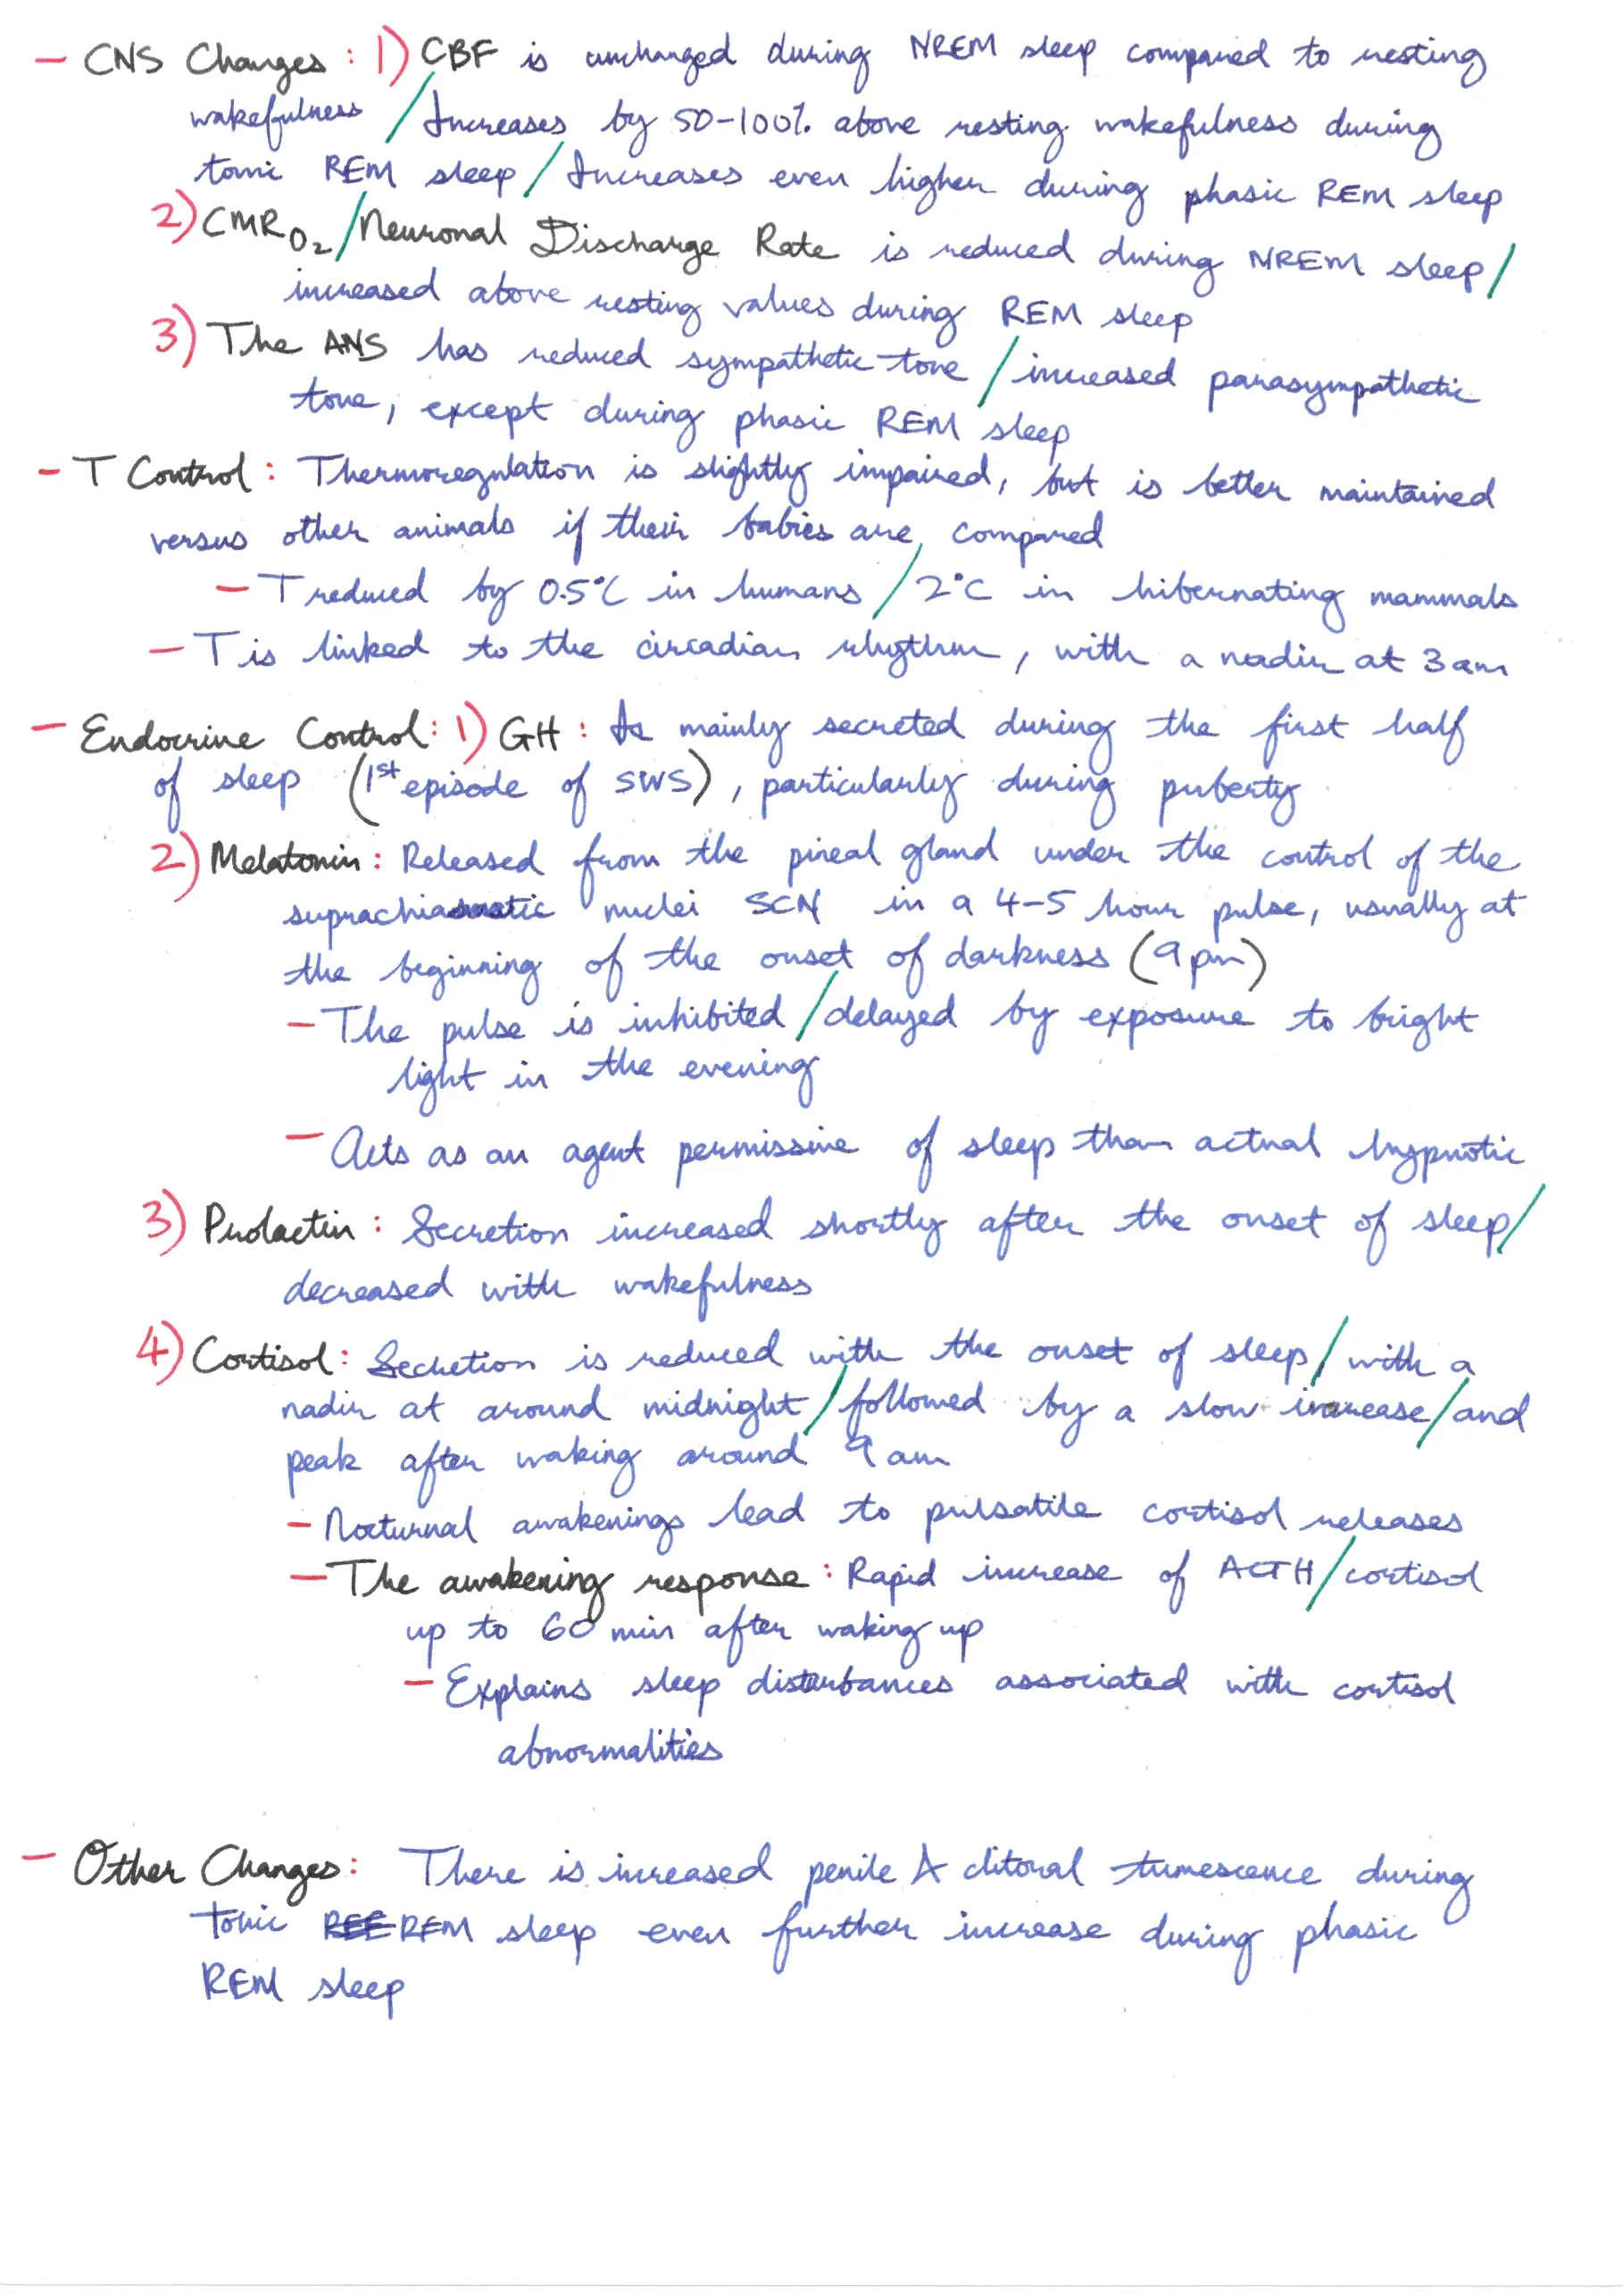 - CNS Changes: 1) CBF is unchanged during NREM sleep compared to resting
wakefulness / Increases by 50-100% above resting wakefulness during
tonic REM sleep / Increases even higher during phasic REM sleep
2) CMRO₂ / Neuronal Discharge Rate is reduced during NREM sleep /
increased above resting values during REM sleep
3) The ANS has reduced sympathetic tone / increased parasympathetic
tone, except during phasic REM sleep
- T Control: Thermoregulation is slightly impaired, but is better maintained
versus other animals if their babies are compared
- T reduced by 0.5°C in humans / 2°C in hibernating mammals
- T is linked to the circadian rhythm, with a nadir at 3am
- Endocrine Control: 1) GH: Is mainly secreted during the first half
of sleep (1st episode of SWS), particularly during puberty
2) Melatonin: Released from the pineal gland under the control of the
suprachiasmatic nuclei SCN in a 4-5 hour pulse, usually at
the beginning of the onset of darkness (9pm)
- The pulse is inhibited / delayed by exposure to bright
light in the evening
- Acts as an agent permissive of sleep than actual hypnotic
3) Prolactin: Secretion increased shortly after the onset of sleep /
decreased with wakefulness
4) Cortisol: Secretion is reduced with the onset of sleep / with a
nadir at around midnight / followed by a slow increase / and
peak after waking around 9am
- Nocturnal awakenings lead to pulsatile cortisol releases
- The awakening response: Rapid increase of ACTH / cortisol
up to 60 min after waking up
- Explains sleep disturbances associated with cortisol
abnormalities
- Other Changes: There is increased penile & clitoral tumescence during
tonic REM sleep even further increase during phasic
REM sleep